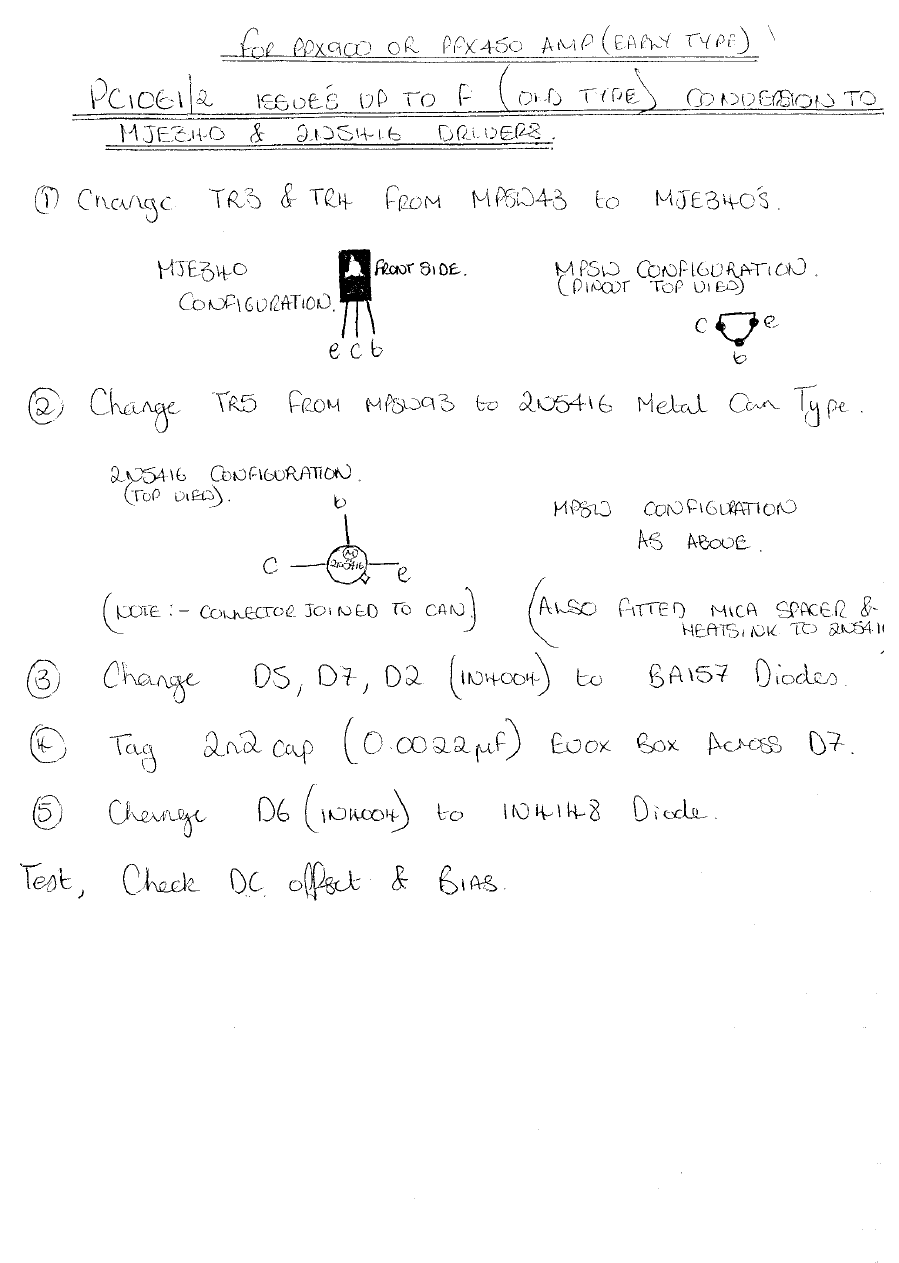 FOR PPX900 OR PPX450 AMP (EARLY TYPE)
PC1061/2 ISSUE'S UP TO F (OLD TYPE) CONVERSION TO
MJE340 & 2N5416 DRIVERS.
① Change TR3 & TR4 FROM MPSW43 to MJE340'S.
MJE340 CONFIGURATION.
FRONT SIDE.
e c b
MPSW CONFIGURATION.
(PINOUT TOP VIEW)
c e
b
② Change TR5 FROM MPSW93 to 2N5416 Metal Can Type.
2N5416 CONFIGURATION.
(TOP VIEW).
b
c 2N5416 e
MPSW CONFIGURATION
AS ABOVE.
(NOTE:- CONNECTOR JOINED TO CAN)
(ALSO FITTED MICA SPACER &
HEATSINK TO 2N541
③ Change D5, D7, D2 (1N4004) to BA157 Diodes.
④ Tag 2n2 cap (0.0022µF) EVOX BOX ACROSS D7.
⑤ Change D6 (1N4004) to 1N4148 Diode.
Test, Check DC offset & BIAS.